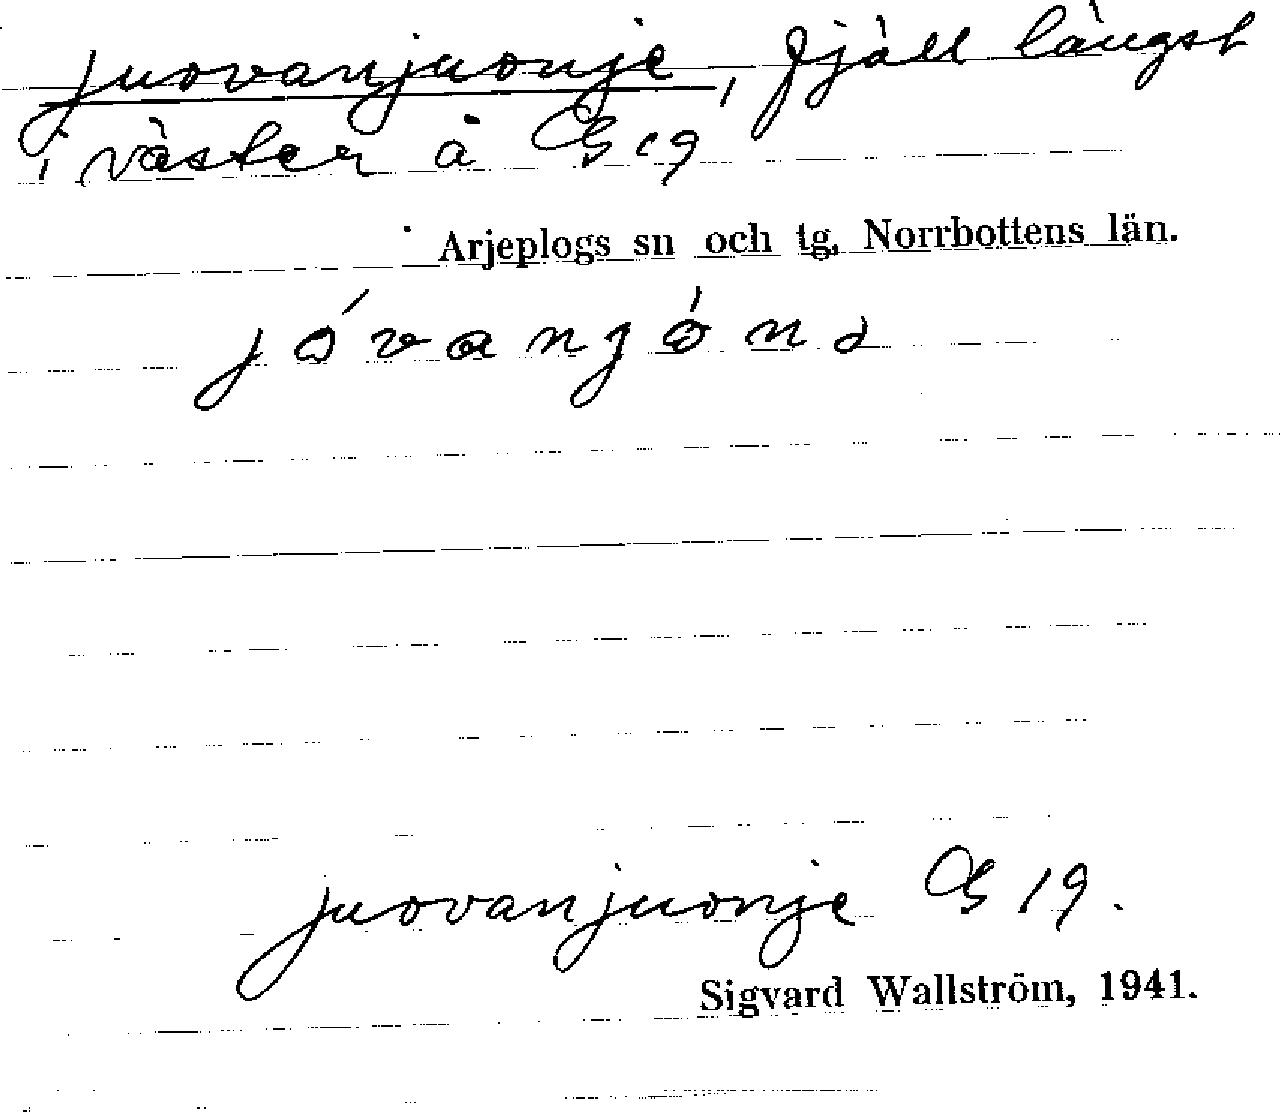 juovanjuonje, fjäll längst
i väster å G 19
Arjeplogs sn och tg, Norrbottens län.
juovanjuonje G 19.
Sigvard Wallström, 1941.